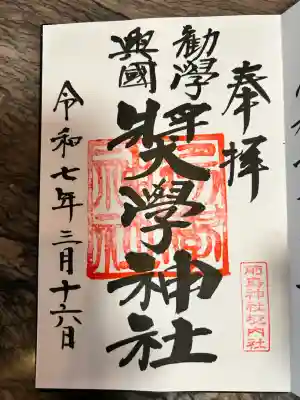 奉拝
勸學
興國
奨學神社
前鳥神社境内社
令和七年三月十六日